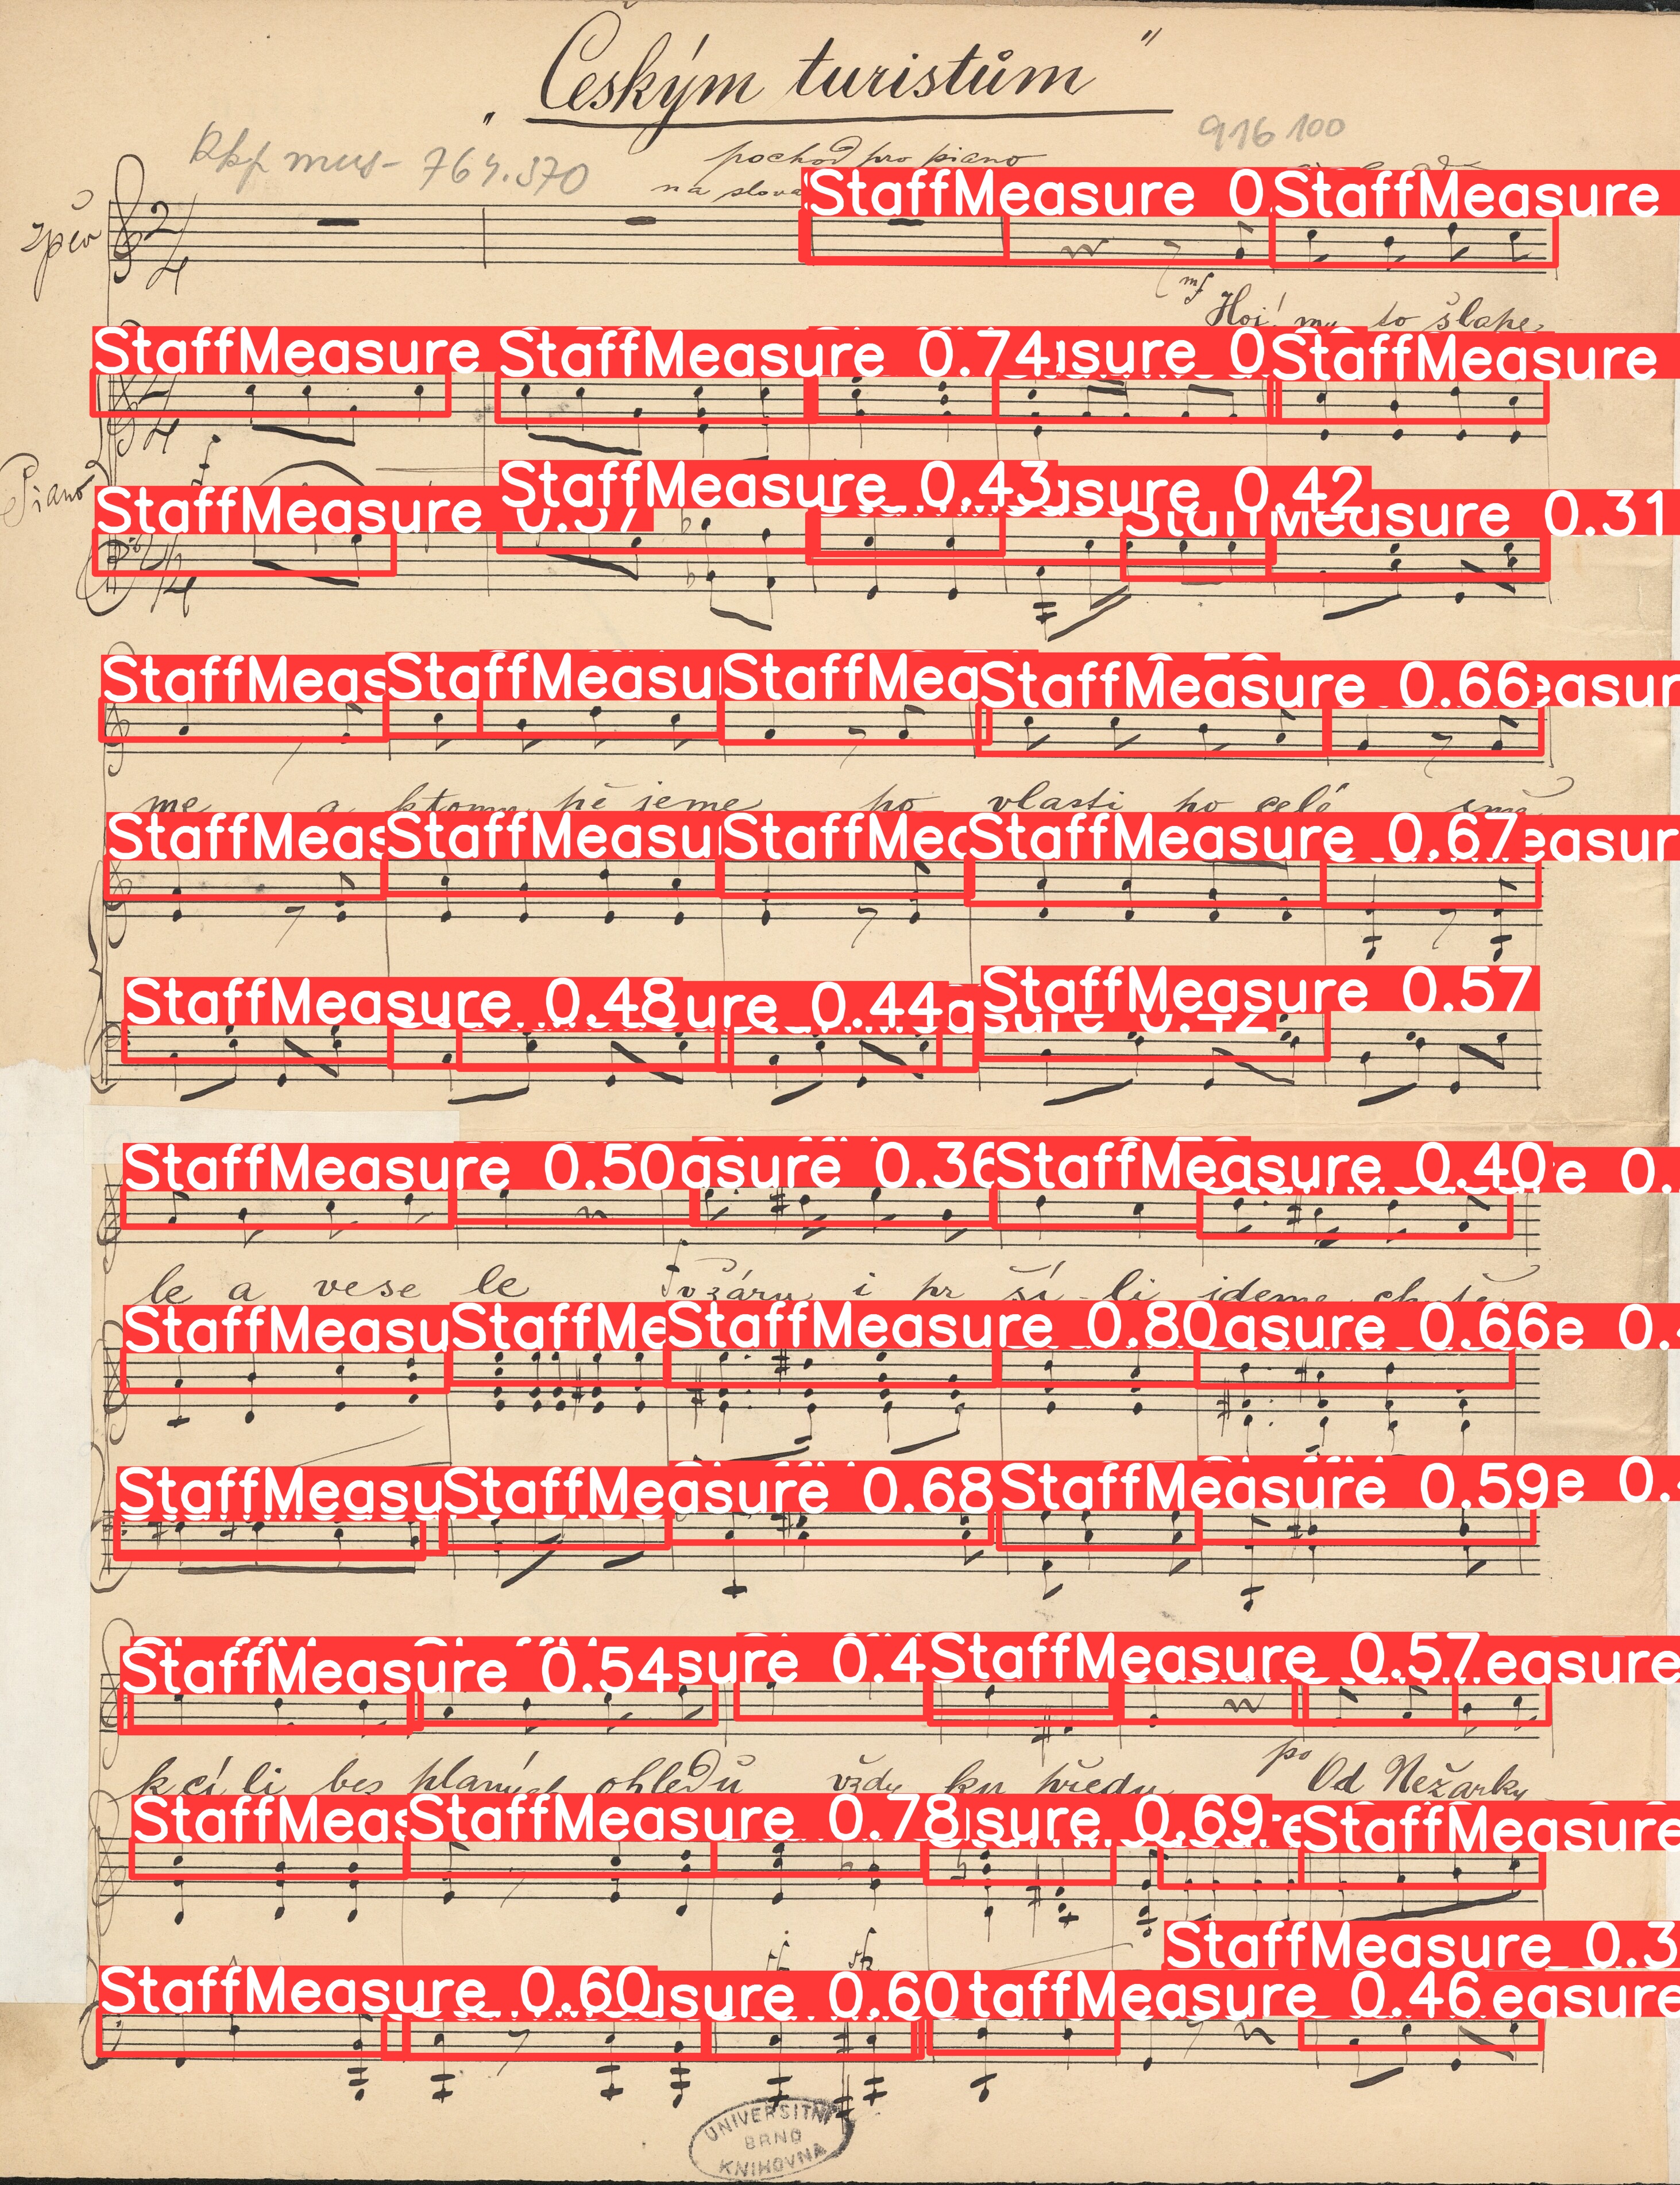 „Českým turistům"
Rkp mus - 764.370
916 100
pochod pro piano
na slova
zpěv
StaffMeasure 0. StaffMeasure
mf
Hoj! my to šlape
StaffMeasure StaffMeasure 0.74 asure 0 StaffMeasure
f
Piano
StaffMeasure 0.57 StaffMeasure 0.43 asure 0.42 StaffMeasure 0.31
StaffMeas StaffMeasu StaffMea StaffMeasure 0.66 easur
me a k tomu pě jeme po vlasti po celé
StaffMeas StaffMeasu StaffMea StaffMeasure 0.67 easur
StaffMeasure 0.48 ure 0.44 asure 0.42 StaffMeasure 0.57
StaffMeasure 0.50 asure 0.36 StaffMeasure 0.40 e 0.
le a vese le v žáru i pr ší - li jdeme
f
StaffMeasu StaffMe StaffMeasure 0.80 asure 0.66 e 0.
StaffMeasu StaffMeasure 0.68 StaffMeasure 0.59 e 0.
StaffMeasure 0.54 sure 0.4 StaffMeasure 0.57 easure
k cí li bez planých ohledů vždy ku předu po Od Nežárky
StaffMeas StaffMeasure 0.78 sure 0.69 StaffMeasure
StaffMeasure 0.3
StaffMeasure 0.60 sure 0.60 taffMeasure 0.46 easure
UNIVERSITNÍ
BRNO
KNIHOVNA